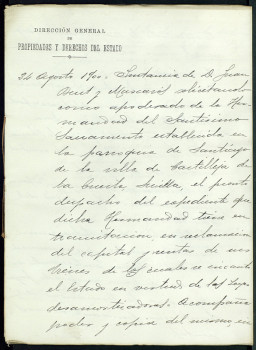 DIRECCIÓN GENERAL
DE
PROPIEDADES Y DERECHOS DEL ESTADO
24 Agosto 190. Instancia de D. Juan
y solicitando
como apoderado de la Her-
mandad del Santísimo
Sacramento establecida en
la parroquia de Santiago
de la villa de Castilleja de
la Cuesta, Sevilla, el pronto
despacho del expediente que
dicha Hermandad tiene en
tramitacion, en reclamacion
del capital y rentas de sus
bienes de los cuales se incautó
el Estado en virtud de las leyes
desamortizadoras. Acompaña
poder y copia del mismo, en